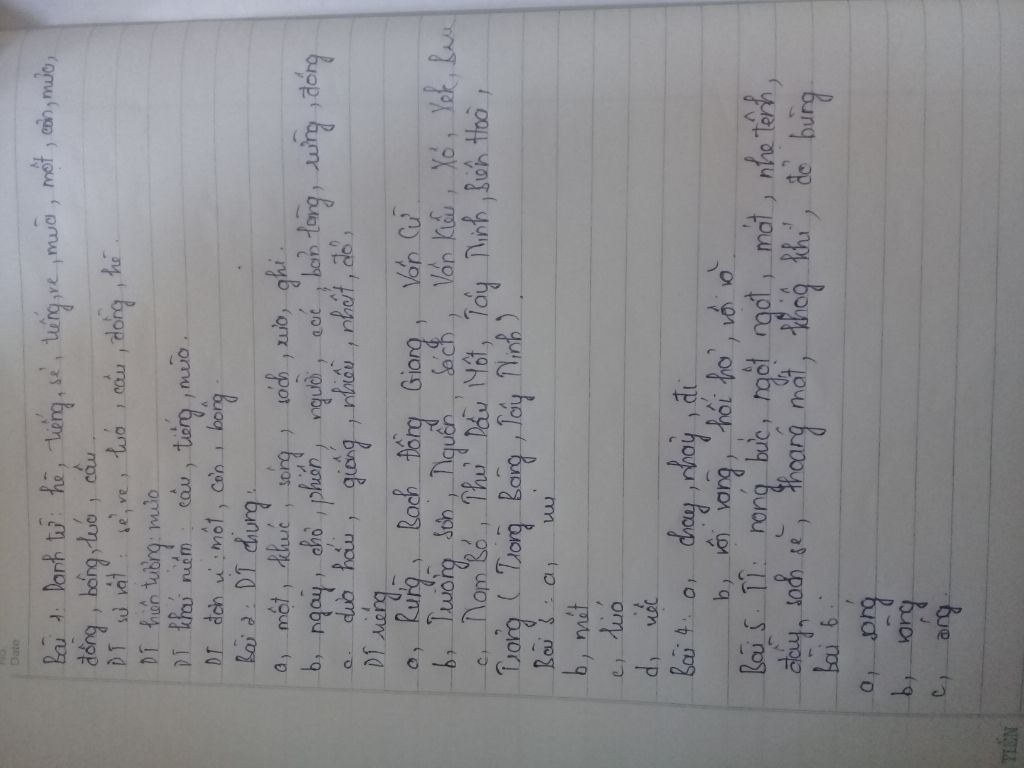 No.
Date
Bài 1. Danh từ: hè, tiếng, sẻ, tiếng, ve, mùa, một, cơn, mưa,
đồng, bông, lúa, câu.
DT sự vật: sẻ, ve, lúa, câu, đồng, hè.
DT hiện tượng: mưa
DT khái niệm: câu, tiếng, mùa.
DT đơn vị: một, cơn, bông.
Bài 2: DT chung:
a, một, khúc, sông, sách, xưa, ghi.
b, ngày, chợ, phiên, người, các, bản làng, rừng, đông
c. dưa hấu, giống, nhiều, nhất, đó,
DT riêng
a, Rừng, Bạch Đằng Giang, Vân Cừ
b, Trường Sơn, Nguồn Sách, Vân Kiều, Xá, Vek,
c, Nam Bộ, Thủ Dầu Một, Tây Ninh, Biên Hoà,
Trảng (Trảng Bàng, Tây Ninh)
Bài 3: a,
b, mết
c, lúa
d,
Bài 4: a, chạy, nhảy, đi
b, vội vàng, hối hả, vồi vồ
Bài 5. TT: nóng bức, ngột ngạt, mát, nhẹ tênh,
đầy, sạch sẽ, thoáng mát, không khí, đỏ bừng
Bài 6:
a, sóng
b, vàng
c, óng.
TIẾN